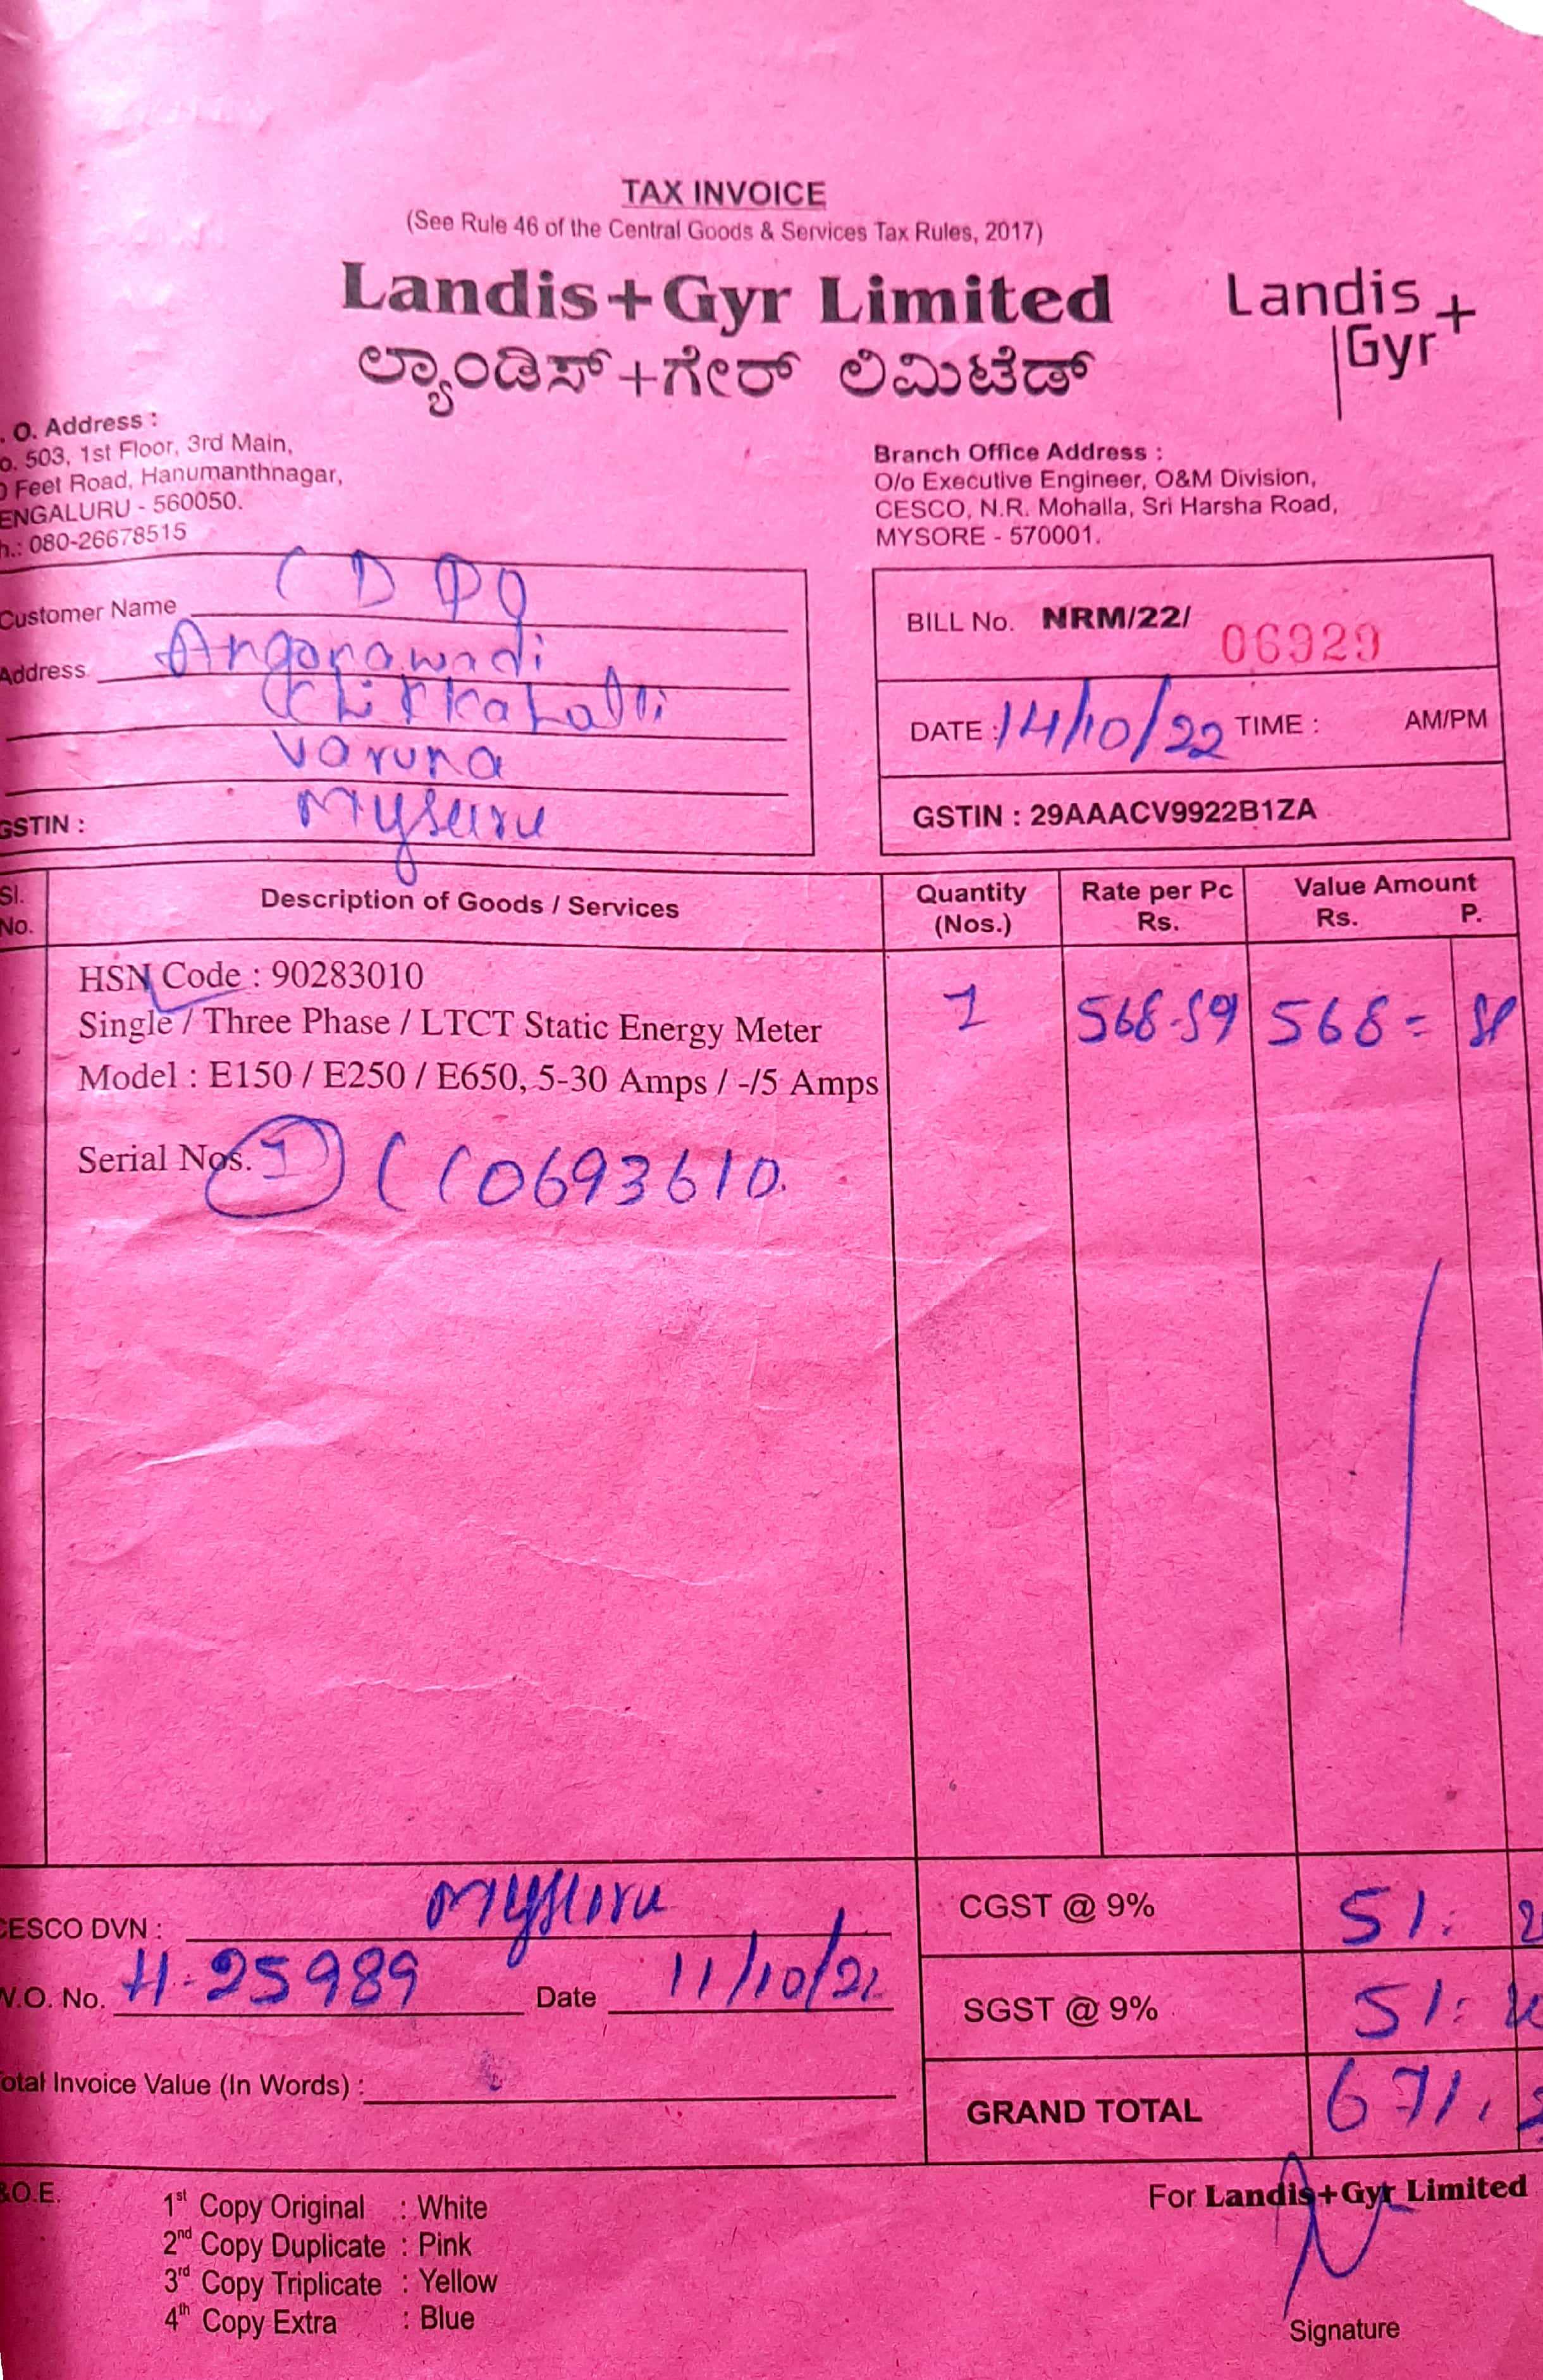 TAX INVOICE
(See Rule 46 of the Central Goods & Services Tax Rules, 2017)
Landis+Gyr Limited
ಲ್ಯಾಂಡಿಸ್+ಗೇರ್ ಲಿಮಿಟೆಡ್
Landis
Gyr+
. O. Address :
o. 503, 1st Floor, 3rd Main,
0 Feet Road, Hanumanthnagar,
ENGALURU - 560050.
h.: 080-26678515
Branch Office Address :
O/o Executive Engineer, O&M Division,
CESCO, N.R. Mohalla, Sri Harsha Road,
MYSORE - 570001.
Customer Name CDPO
Address Anganawadi
Chikkahalli
Varuna
GSTIN : Mysuru
BILL No. NRM/22/ 06929
DATE : 14/10/22 TIME : AM/PM
GSTIN : 29AAACV9922B1ZA
Sl. No. Description of Goods / Services Quantity (Nos.) Rate per Pc Rs. Value Amount Rs. P.
HSN Code : 90283010
Single / Three Phase / LTCT Static Energy Meter 1 568-59 568=
Model : E150 / E250 / E650, 5-30 Amps / -/5 Amps
Serial Nos. 1) 0693610
CESCO DVN : Mysuru
W.O. No. H-25989 Date 11/10/22
otal Invoice Value (In Words) :
CGST @ 9% 51
SGST @ 9% 51
GRAND TOTAL 671
&O.E.
1st Copy Original : White
2nd Copy Duplicate : Pink
3rd Copy Triplicate : Yellow
4th Copy Extra : Blue
For Landis+Gyr Limited
Signature